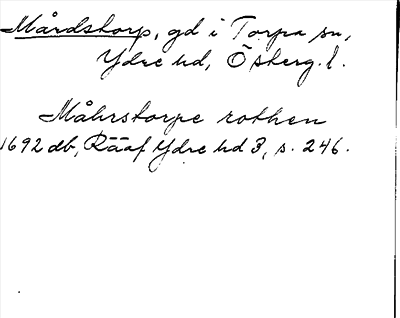 Mårdstorp, gd i Torpa sn,
Ydre hd, Österg. l.
Måhrstorpe rothen
1692 db, Rääf Ydre hd 3, s. 246.